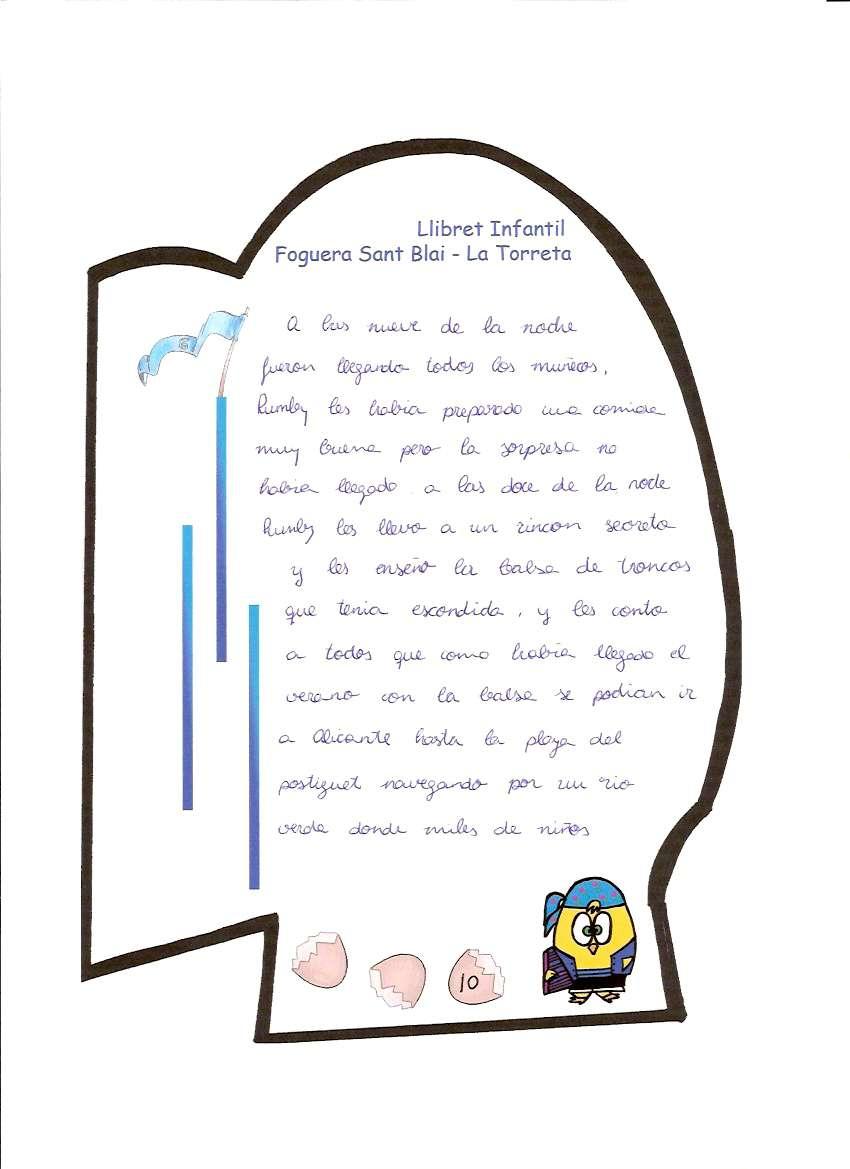 Llibret Infantil
Foguera Sant Blai - La Torreta
A las nueve de la noche
fueron llegando todos los muñecos,
Rumby les habia preparado una comida
muy buena pero la sorpresa no
habia llegado. a las doce de la noche
Rumby les llevo a un rincon secreto
y les enseño la balsa de troncos
que tenia escondida, y les conto
a todos que como habia llegado el
verano con la balsa se podian ir
a Alicante hasta la playa del
postiguet navegando por un rio
verde donde miles de niños
10